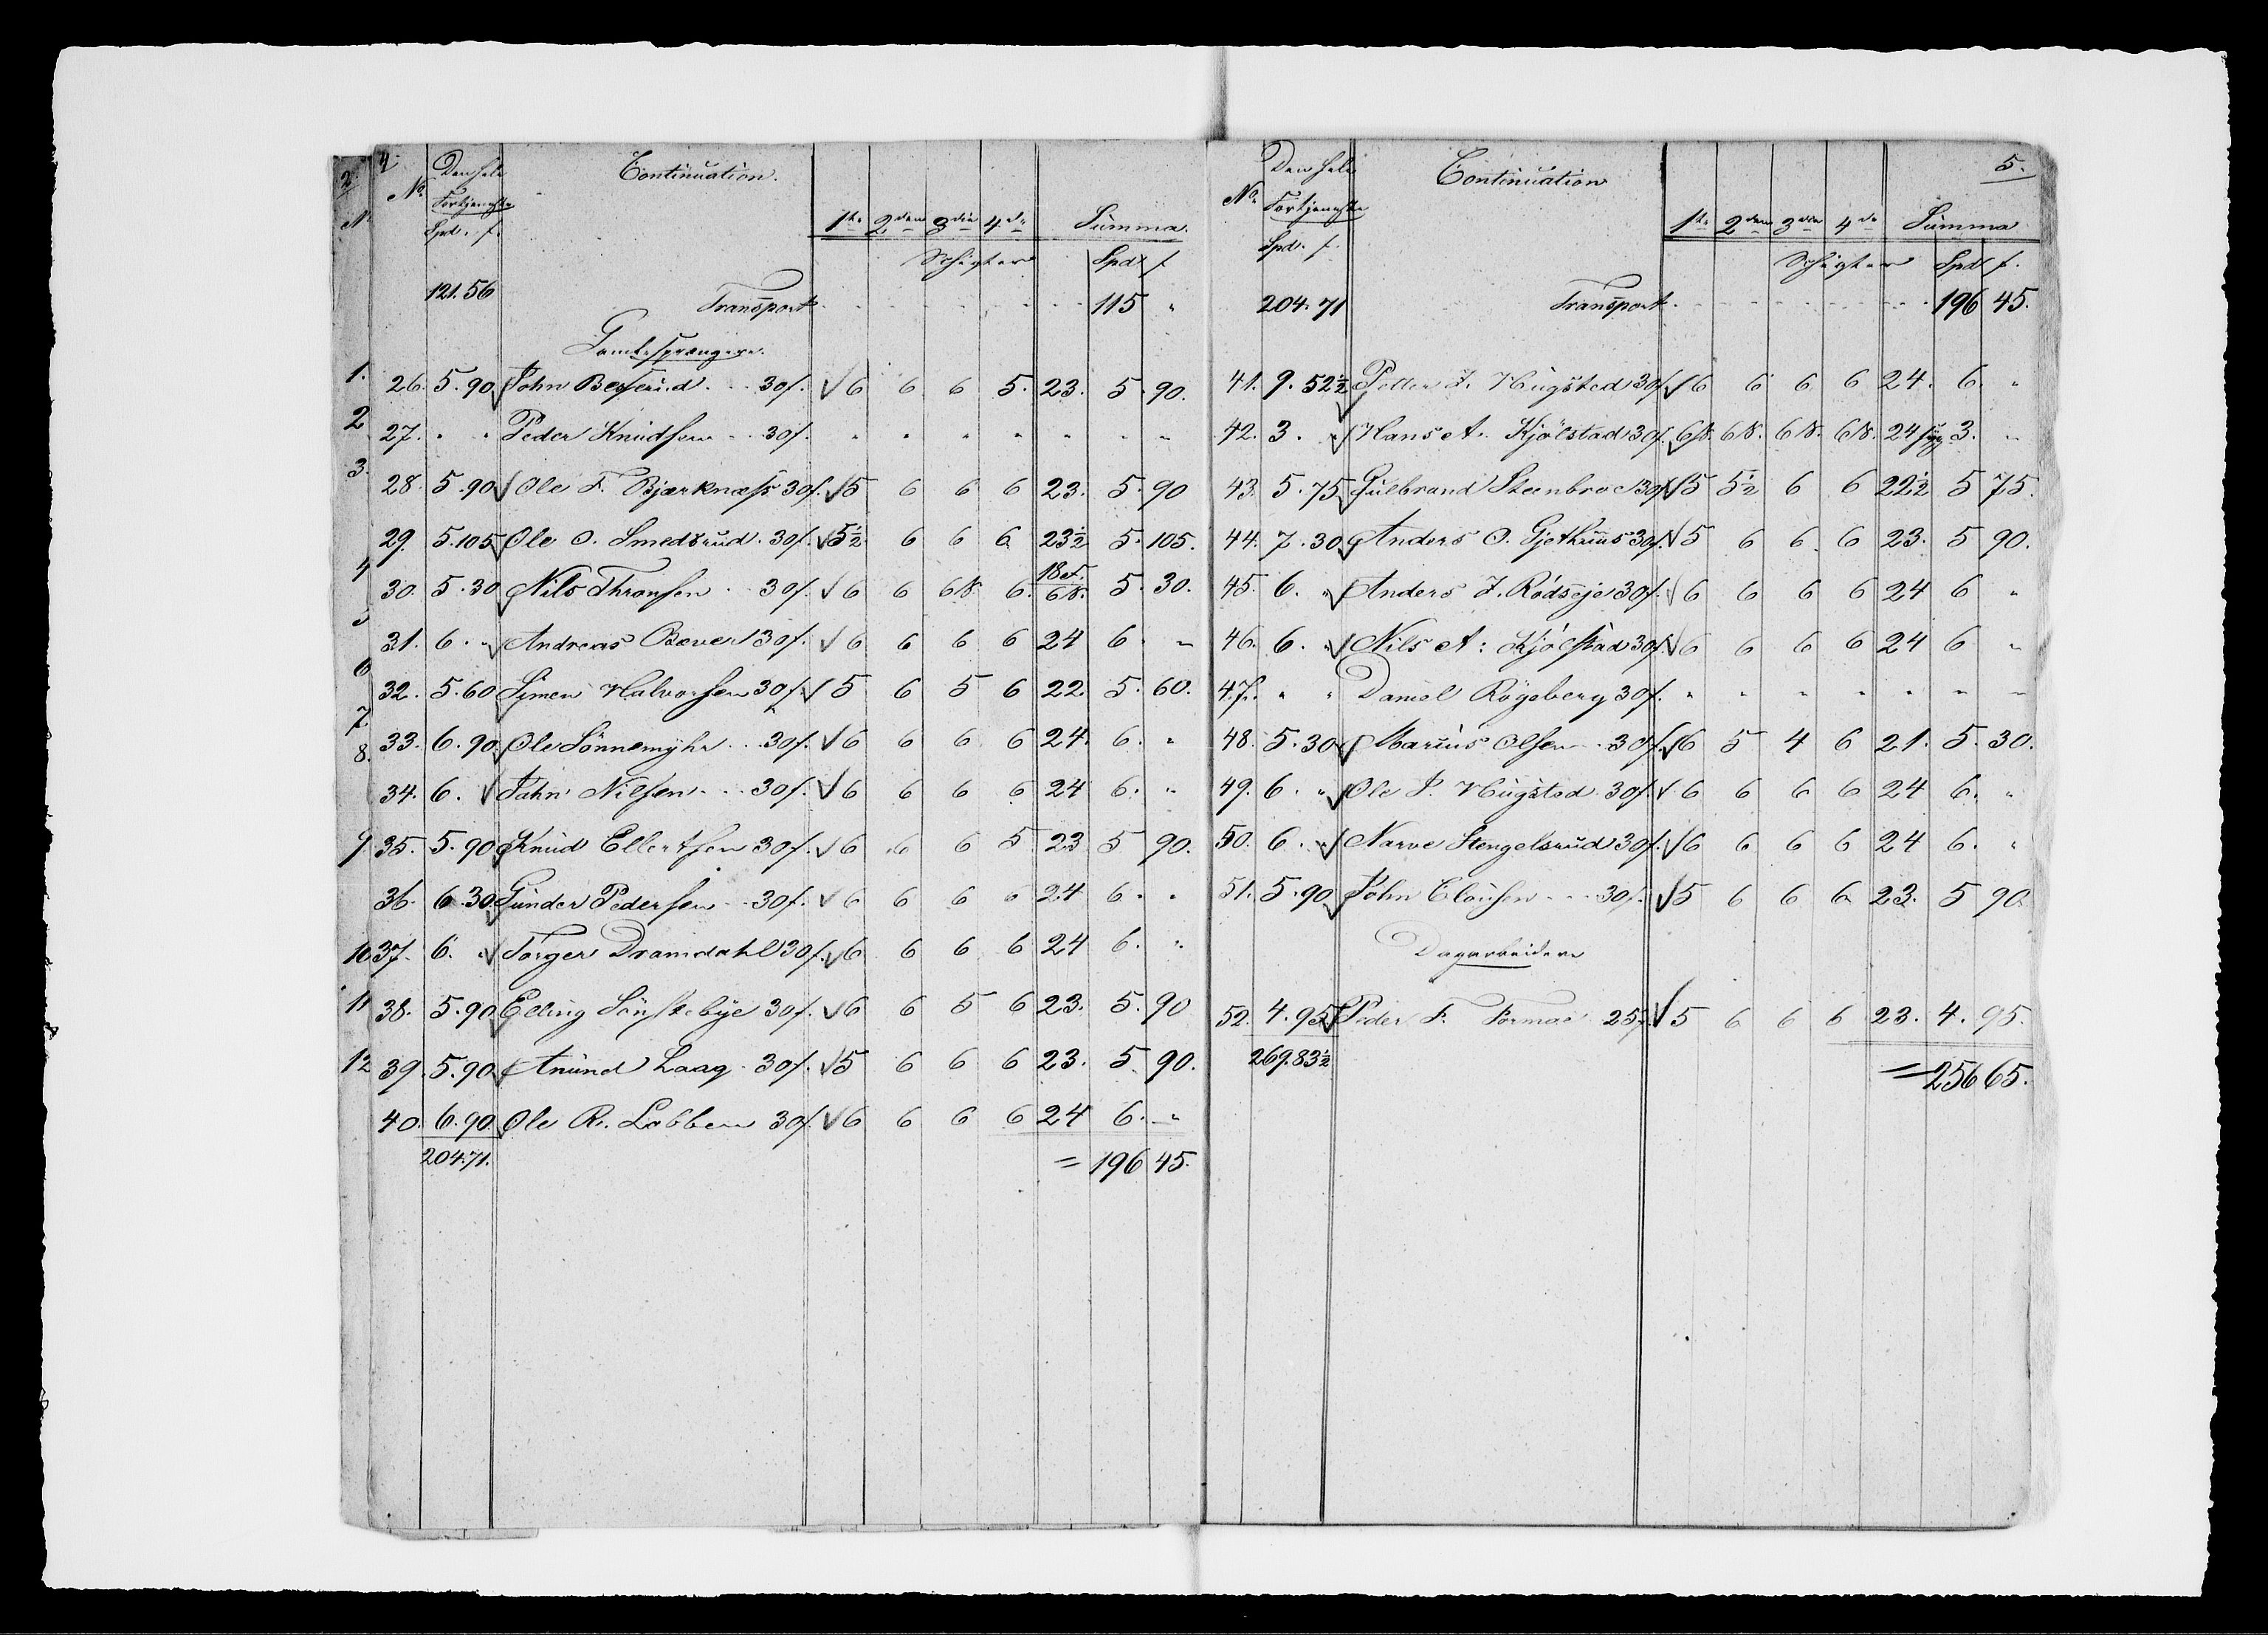 4.
No. Den hele Fortjeneste Continuation.
Spd. f. 1ste 2den 3die 4de Summa.
Schigter Spd f
121.56 Transport 115 "
26. 5.90 John Bersrud 30f. 6 6 6 5. 23. 5.90.
27. " " Peder Knudsen 30f. " " " " " " "
28. 5.90 Ole F. Bjærknæss 30f. 5 6 6 6 23. 5.90
29. 5.105 Ole O. Smedsrud. 30f. 5½ 6 6 6 23½ 5.105.
30. 5.30 Nils Thronsen 30f. 6 6 6 6. 5.30.
31. 6. " Andreas Bæver 30f. 6 6 6 6 24 6. "
32. 5.60 Simen Halvorsen 30f. 5 6 5 6 22. 5.60.
33. 6.90. Ole Sönnemyhr 30f. 6 6 6 6 24. 6. "
34. 6. John Nilsen 30f. 6 6 6 6 24 6. "
35. 5.90 Knud Ellertsen 30f. 6 6 6 5 23 5 90.
36. 6.30. Gunder Pedersen 30f. 6 6 6 6 24 6. "
37. 6. " Torger Dramdahl 30f. 6 6 6 6 24 6. "
38. 5.90 Elling Sönstebye 30f. 6 6 5 6 23. 5.90
39. 5.90 Anund Laag 30f. 5 6 6 6 23. 5 90.
40. 6.90. Ole R. Lobben 30f. 6 6 6 6 24 6. "
204.71. = 196 45.
5.
No. Den hele Fortjeneste Continuation
Spd. f. 1ste 2den 3die 4de Summa
Schigter Spd f.
204.71 Transport 196 45.
41. 9.52½ Petter J. Hugsted 30f 6 6 6 6 24. 6. "
42. 3. " Hans A. Kjölstad 30f. 6 6 6 6 24 3. "
43. 5.75 Gulbrand Steenbroe 30f 5 5½ 6 6 22½ 5 75.
44. 7.30 Anders O. Gjethuus 30f. 5 6 6 6 23. 5 90.
45. 6. " Anders J. Rödseje 30f. 6 6 6 6 24 6 "
46. 6. " Nils A: Kjölstad 30f. 6 6 6 6 24 6 "
47. " " Daniel Röyeberg 30f. " " " " " " "
48. 5.30 Marius Olsen 30f. 6 5 4 6 21. 5.30.
49. 6. " Ole P. Hugsted 30f. 6 6 6 6 24 6. "
50. 6. " Narve Stengelsrud 30f. 6 6 6 6 24 6. "
51. 5.90 John Clousen 30f. 5 6 6 6 23. 5 90
Dagarbeidere
52. 4.95 Peder F. Formoe 25f. 5 6 6 6 23. 4. 95.
269.83½ = 256 65.